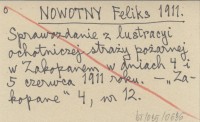 NOWOTNY Feliks 1911.
Sprawozdanie z lustracyi
ochotniczej straży pożarnej
w Zakopanem w dniach 4 i
5 czerwca 1911 roku. – „Za-
kopane" 4, nr 12.